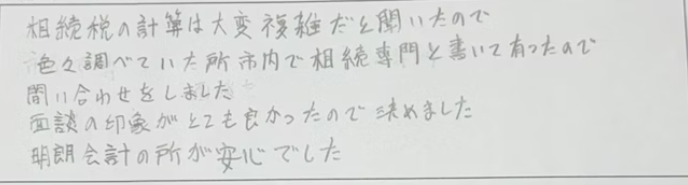 相続税の計算は大変複雑だと聞いたので
色々調べていた所市内で相続専門と書いて有ったので
問い合わせをしました
面談の印象がとても良かったので決めました
明朗会計の所が安心でした